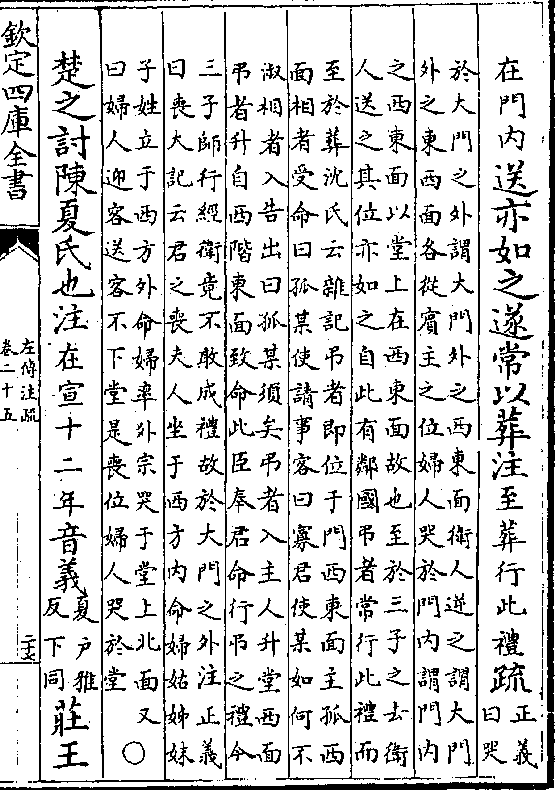 在門内送亦如之遂常以葬注至葬行此禮疏正義
曰哭
於大門之外謂大門外之西東面衛人逆之謂大門
外之東西面各從賓主之位婦人哭於門内謂門内
之西東面以堂上在西東面故也至於三子之去衛
人送之其位亦如之自此有鄰國弔者常行此禮而
至於葬沈氏云雜記弔者即位于門西東面主孤西
面相者受命曰孤某使請事客曰寡君使某如何不
淑相者入告出曰孤某須矣弔者入主人升堂西面
弔者升自西階東面致命此臣奉君命行弔之禮今
三子師行經衛竟不敢成禮故於大門之外注正義
曰喪大記云君之喪夫人坐于西方内命婦姑姊妹
子姓立于西方外命婦率外宗哭于堂上北面又
曰婦人迎客送客不下堂是喪位婦人哭於堂
○
楚之討陳夏氏也注在宣十二年音義夏户雅
反下同
莊王
欽定四庫全書
左傳注疏
卷二十五
二十七